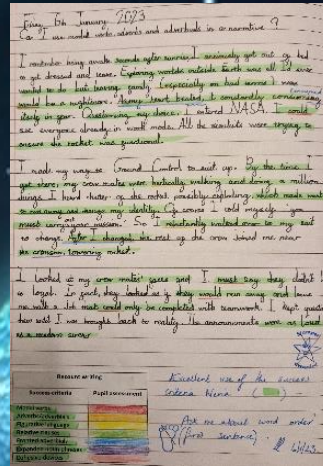 Friday 6th January 2023
Can I use modal verbs, adverbs and adverbials in a narrative?
I remember being awake seconds after sunrise. I anxiously got out of bed
to get dressed and leave. Exploring worlds outside Earth was all I'd ever
wanted to do but leaving family (especially on bad terms)
would be a nightmare.
itself in gear. Questioning my choice, I entered NASA. I could
see everyone already in work mode. All the scientists were trying to
ensure the rocket was functional.
I made my way to Ground Control to suit up. By the time I
got there, my crew mates were frantically walking and doing a million
things. I heard of the rocket possibly exploding, which made me want
to run away and change my identity. Of course I told myself you
must carry out your mission. So I reluctantly walked over to my suit
to change. After I changed, the rest of the crew joined me near
the towering rocket.
I looked at my crew mates' faces and I must say they didn't
In fact, they looked as if they would run away and leave
me with a job that could only be completed with teamwork. I kept
until I was brought back to reality. The announcements were as loud
as a
Recount writing
Success criteria Pupil assessment
Modal verbs
Adverbs/adverbials
Figurative language
Relative clauses
Fronted adverbials
Expanded noun phrases
Cohesive devices
Excellent use of the success
criteria
Ask me about word order
(first sentence).